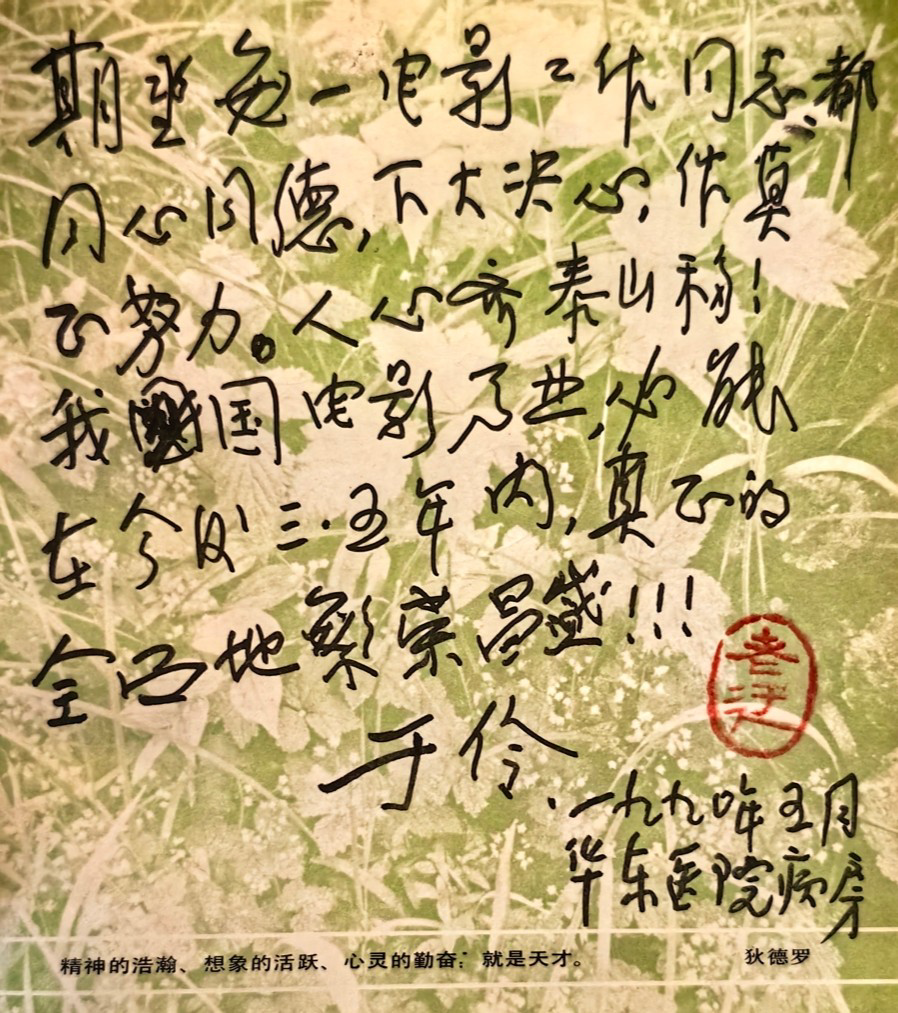 期望每一电影工作同志都
同心同德,下大决心,作真
正努力。人心齐泰山移!
我国电影事业,必能
在今后三·五年内,真正的
全面地繁荣昌盛!!!
于伶.
一九九0年五月
华东医院病房
精神的浩瀚、想象的活跃、心灵的勤奋:就是天才。 狄德罗